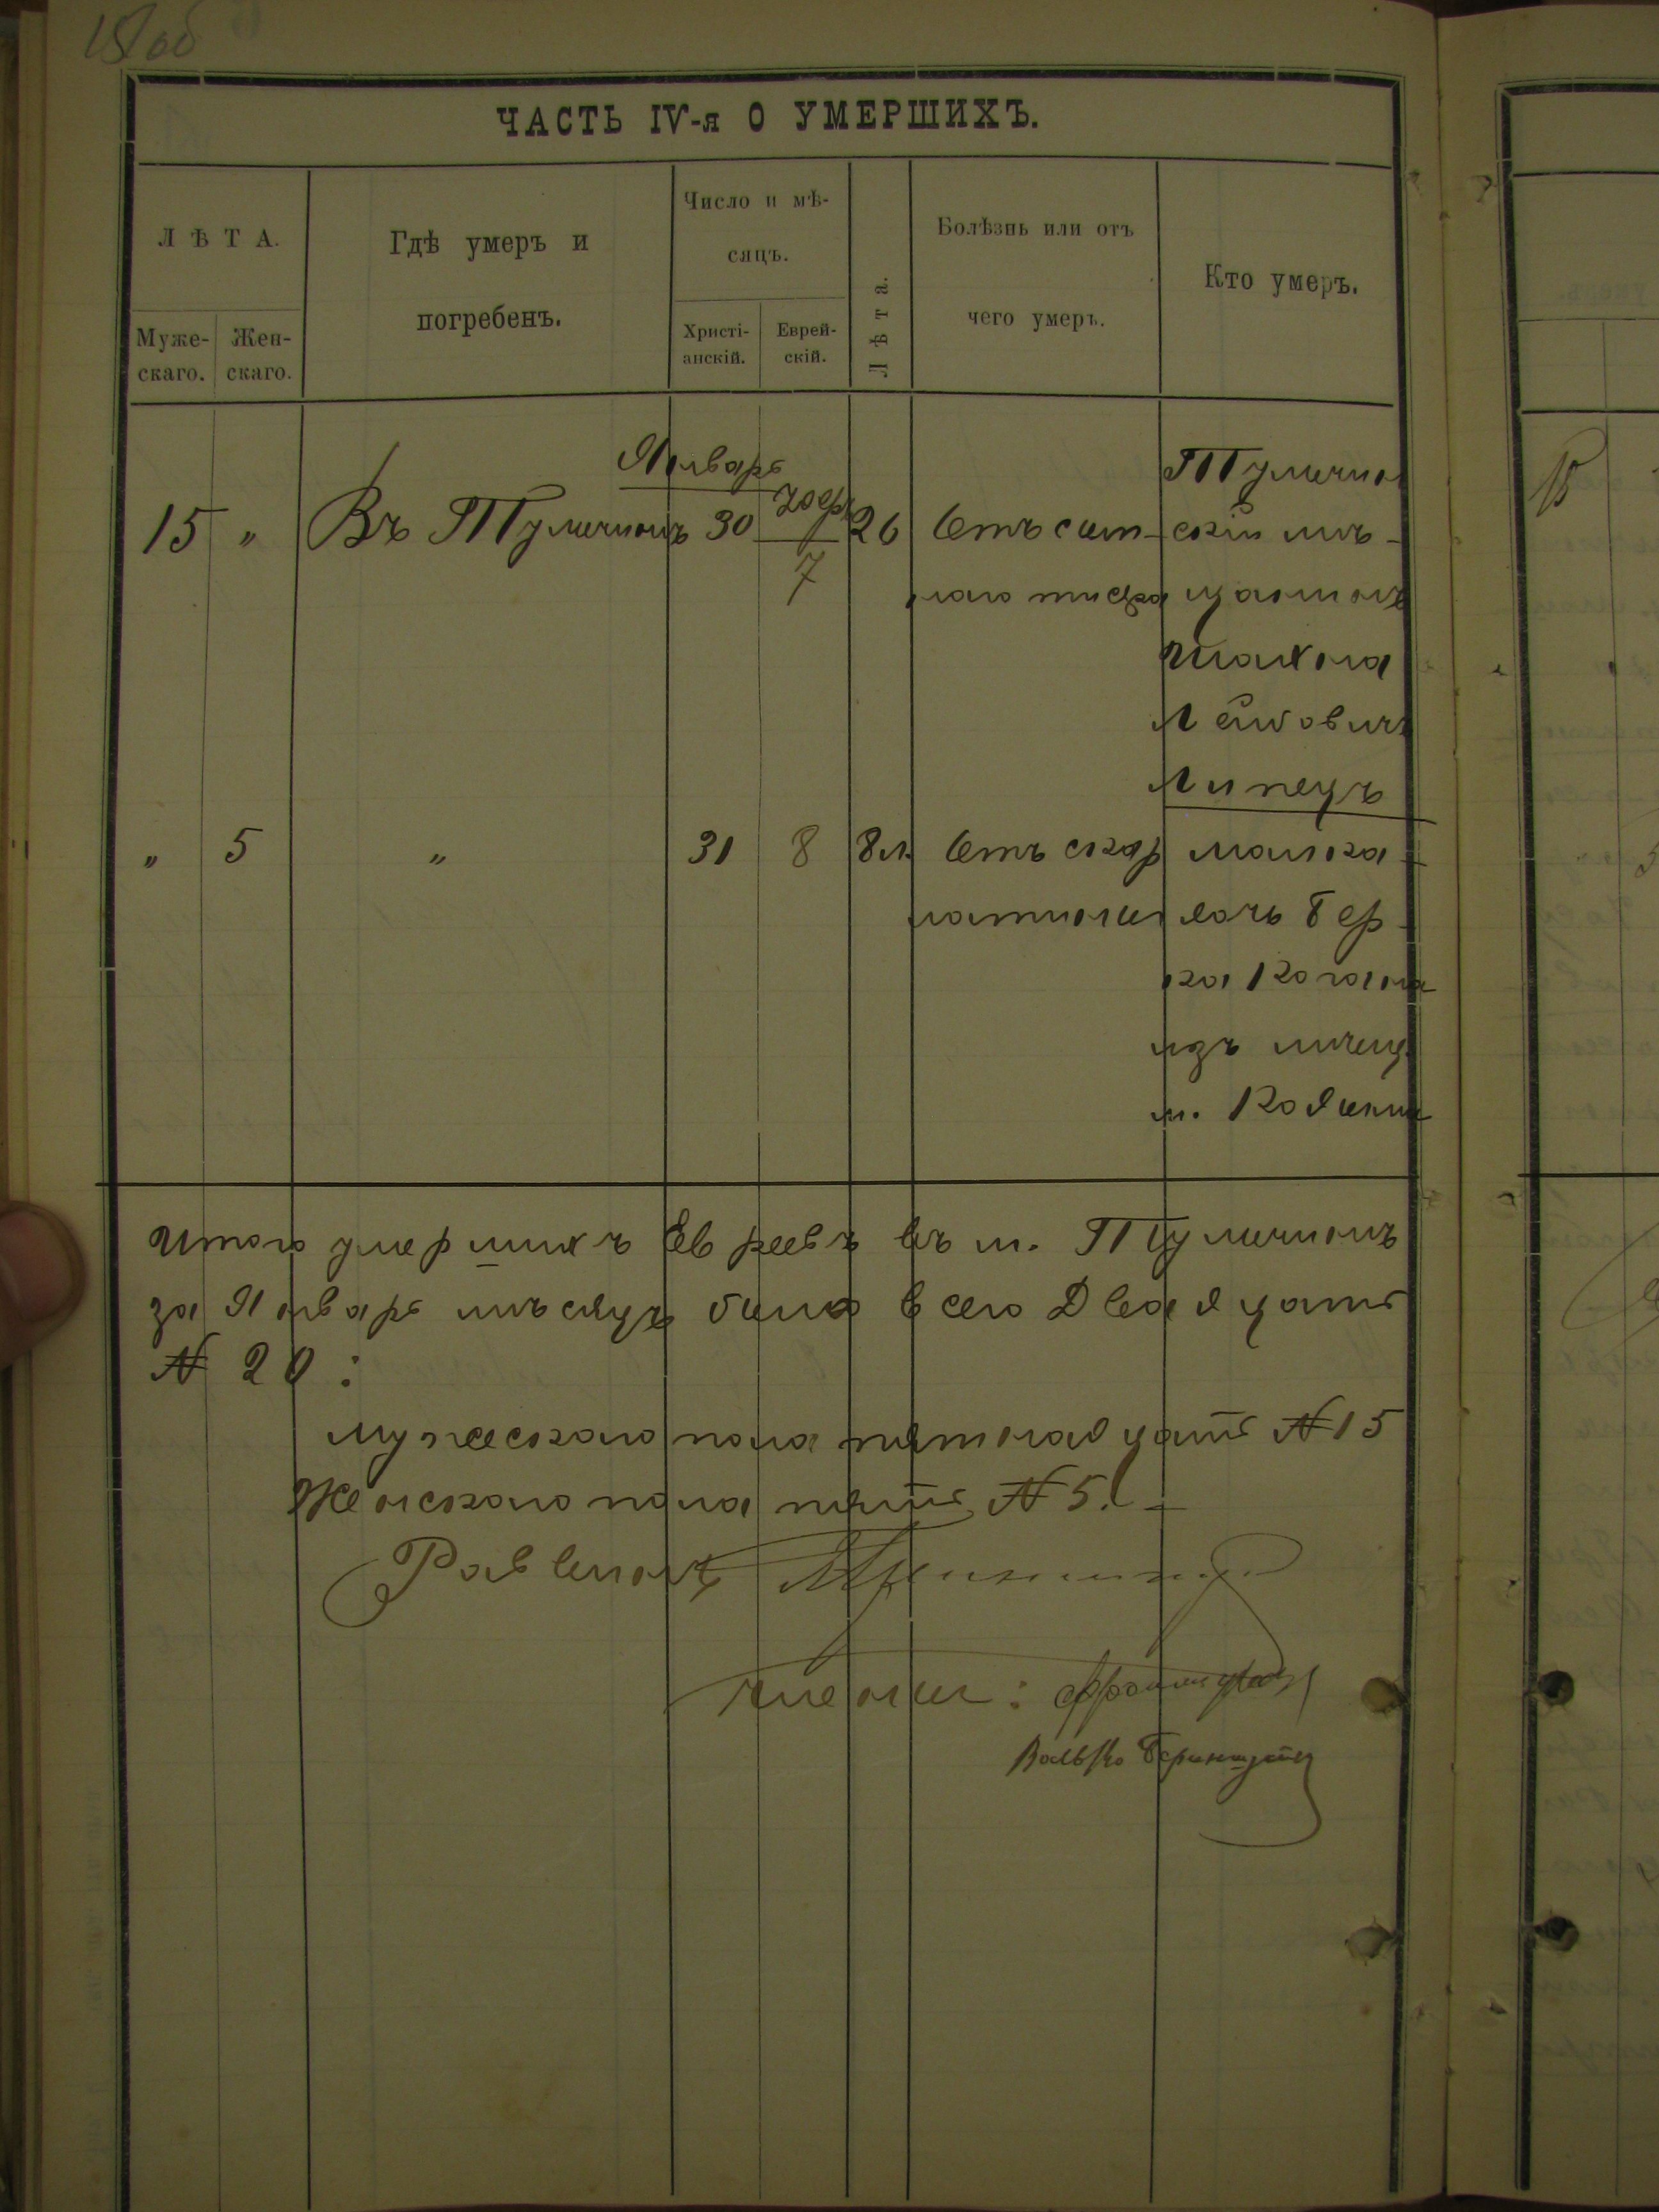 ЧАСТЬ IV-я О УМЕРШИХЪ.
ЛѢТА.
Муже-
скаго.
Жен-
скаго.
Гдѣ умеръ и
погребенъ.
Число и мѣ-
сяцъ.
Христі-
анскій.
Еврей-
скій.
Лѣта.
Болѣзнь или отъ
чего умеръ.
Кто умеръ.
Январь
15 „ Въ Тульчинѣ 30 7 26 Отъ сып-
наго тифа
Тульчин
скій мѣ-
щанинъ
Лейбовичъ
Липецъ
„ 5 „ 31 8 8 л. Отъ скар
латины
Малка
дочь Бер-
ка Когана
изъ мѣщ.
м. Кодыми
Итого умершихъ Евреевъ въ м. Тульчинѣ
за Январь мѣсяцъ было всего Двадцать
№ 20:
мужескаго пола пятнадцать № 15
Женскаго пола пять № 5.
Раввинъ
Члены:
Волько